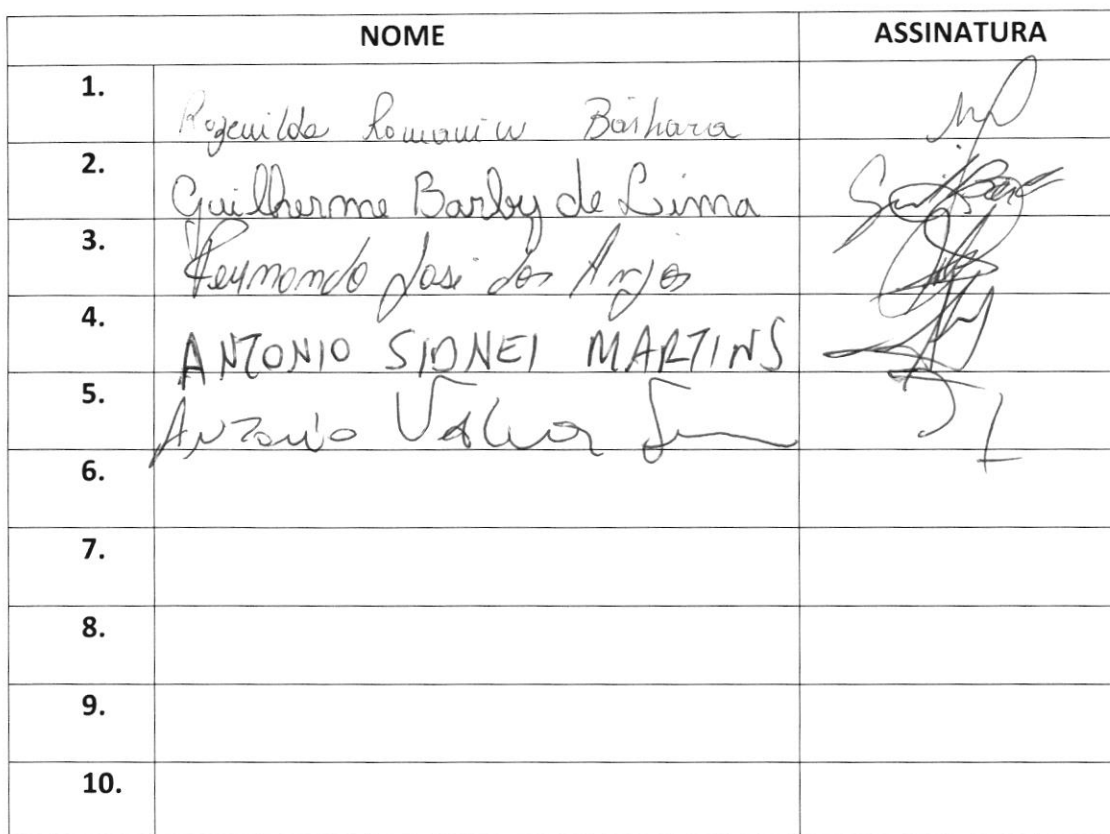 NOME ASSINATURA
1. Rozenilda Romaniw Bárbara
2. Guilherme Barby de Lima
3. José dos Anjos
4. ANTONIO SIDNEI MARTINS
5. Antonio
6.
7.
8.
9.
10.